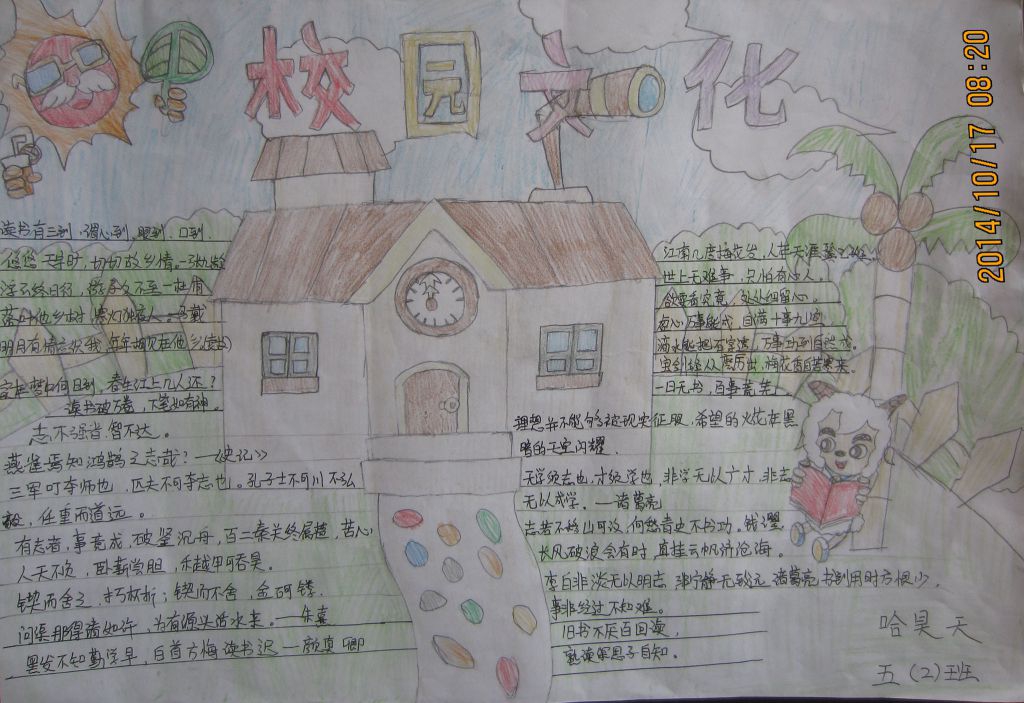 校园文化
2014/10/17 08:20
读书有三到,谓心到,眼到,口到.
悠悠天宇旷,切切故乡情。—张九龄
落叶他乡树,寒灯独夜人—马戴
明月有情应识我,年年相见在他乡
定知梦中何日到,春生江上几人还?
读书破万卷,下笔如有神。
志不强者智不达。
燕雀焉知鸿鹄之志哉?—《史记》
三军可夺帅也,匹夫不可夺志也。孔子士不可以不弘
毅,任重而道远。
有志者,事竟成,破釜沉舟,百二秦关终属楚,苦心
人天不负,卧薪尝胆,三千越甲可吞吴.
锲而舍之,朽木不折;锲而不舍,金石可镂.
问渠那得清如许,为有源头活水来。—朱熹
黑发不知勤学早,白首方悔读书迟—颜真卿
江南几度梅花发,人在天涯鬓已斑.
世上无难事,只怕有心人。
欲要看究竟,处处细留心。
有心万事能成,自满十事九空
滴水能把石穿透,万事功到自然成.
宝剑锋从磨厉出,梅花香自苦寒来.
一日无书,百事荒芜.
理想并不能够被现实征服,希望的火花在黑
暗的天空闪耀.
夫学须志也,才须学也,非学无以广才,非志
无以成学。—诸葛亮
志若不移山可改,何愁青史不书功.钱
长风破浪会有时,直挂云帆济沧海。
李白非淡无以明志,非宁静无致远.诸葛亮书到用时方恨少,
事非经过不知难。
旧书不厌百回读,
熟读深思子自知。
哈昊天
五(2)班